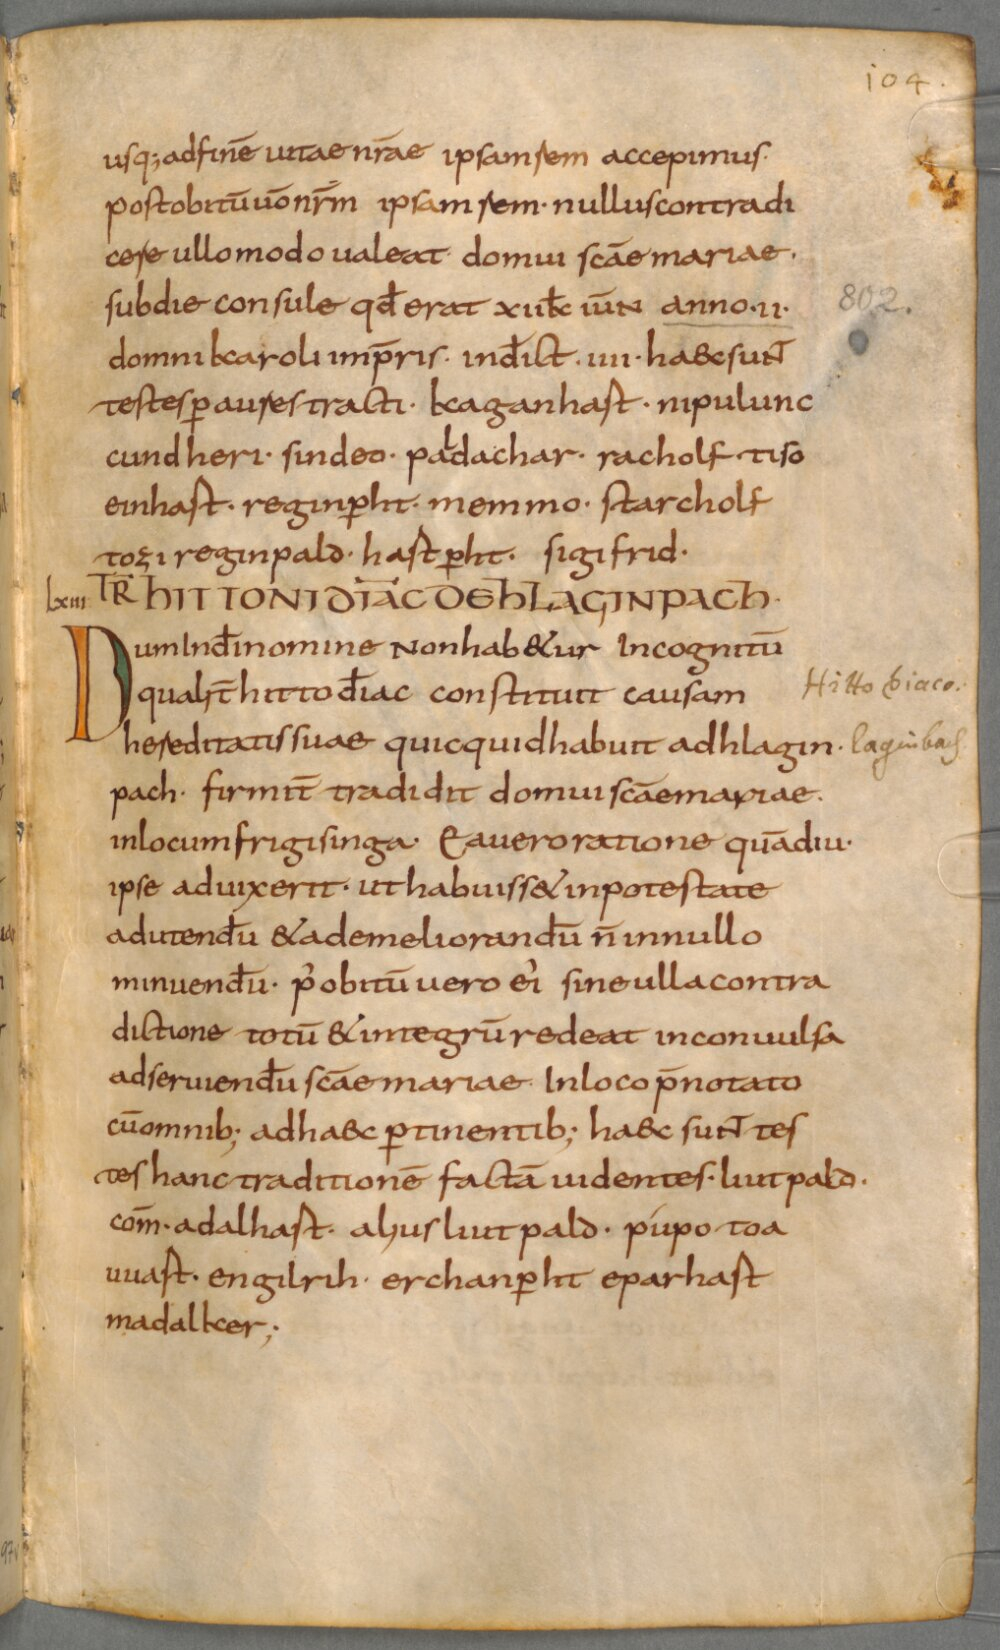 104.
usq; adfinē uitae nr̄ae ipsam rem accepimus.
post obitū uō nr̄m ipsam rem. nullus contradi
cere ullo modo ualeat domui sc̄ae mariae.
sub die consule qđ erat xii kƚ iūn anno. ii.
802.
domni karoli imp̄ris. indīct. iiii. haec sunt̄
testes ꝑ aures tracti. kaganhast. nipulunc
cundheri. sindeo. paldachar. racholf tiso
einhast. reginꝑht. memmo. starcholf
tozi reginpald. hastꝑht. sigifrid.
lxiii TR̄ HITTONI DIĀC DE HLAGINPACH.
Dum In dī nomine Non hab&ur Incognitū
qualit̄ hitto điac constituit causam
Hitto diaco.
hereditatis suae quicquid habuit ad hlagin.
laginbach
pach. firmit̄ tradidit domui sc̄ae mariae.
in locum frigisinga. Ea uero ratione quādiu.
ipse aduixerit. ut habuiss& in potestate
ad utendū & ad emeliorandū n̄ in nullo
minuendū. p̓ obitū uero ei̓ sine ulla contra
dictione totū & integrū redeat inconuulsa
ad seruiendū sc̄ae mariae. In loco p̄notato
cū omnib; ad haec ꝑtinentib; haec sunt̄ tes
tes hanc traditionē factā uidentes. liutpald.
com̄. adalhast. alius liutpald. pupo toa
uuast. engilrih. erchanꝑht eparhast
madalker;.